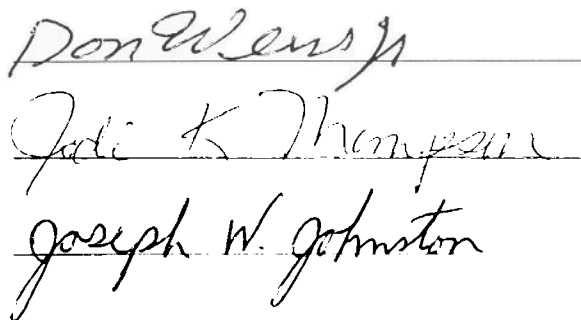 Don Weiss Jr
Jodi K Thompson
Joseph W. Johnston